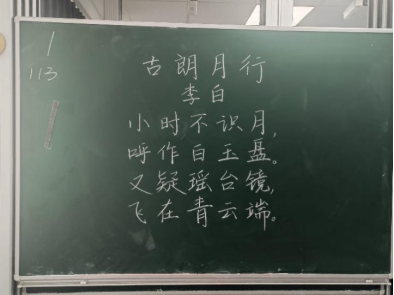 1
113
古朗月行
李白
小时不识月,
呼作白玉盘。
又疑瑶台镜,
飞在青云端。